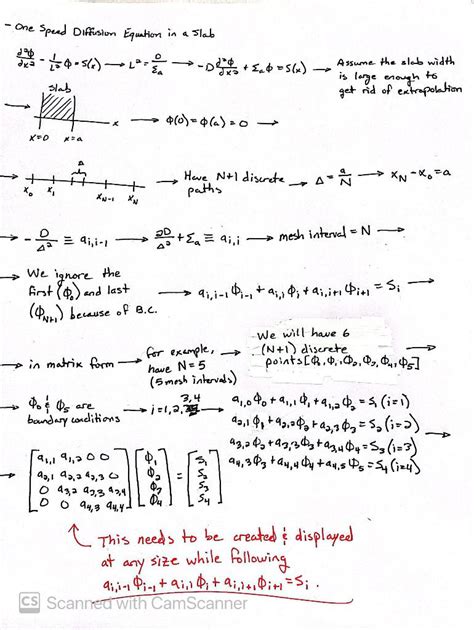 - One Speed Diffusion Equation in a Slab
d²φ/dx² - 1/L² φ = S(x) → L² = D/Σa → -D d²φ/dx² + Σa φ = S(x) → Assume the slab width is large enough to get rid of extrapolation
Slab
x
x=0 x=a
→ φ(0) = φ(a) = 0 →
Δ
x₀ x₁ xN-1 xN
→ Have N+1 discrete paths → Δ = a/N → xN - x₀ = a
→ - D/Δ² ≡ ai,i-1 → 2D/Δ² + Σa ≡ ai,i → mesh interval = N →
→ We ignore the first (φ₀) and last (φN+1) because of B.C.
→ ai,i-1 φi-1 + ai,i φi + ai,i+1 φi+1 = Si →
→ in matrix form → for example, have N=5 (5 mesh intervals) →
We will have 6 (N+1) discrete points [φ, φ₁, φ₂, φ₃, φ₄, φ₅]
→ φ₀ & φ₅ are boundary conditions → i=1,2,3,4
a1,0 φ₀ + a1,1 φ₁ + a1,2 φ₂ = S₁ (i=1)
a2,1 φ₁ + a2,2 φ₂ + a2,3 φ₃ = S₂ (i=2) →
a3,2 φ₂ + a3,3 φ₃ + a3,4 φ₄ = S₃ (i=3)
a4,3 φ₃ + a4,4 φ₄ + a4,5 φ₅ = S₄ (i=4)
a1,1 a1,2 0 0 φ₁ = S₁
a2,1 a2,2 a2,3 0 φ₂ S₂
0 a3,2 a3,3 a3,4 φ₃ S₃
0 0 a4,3 a4,4 φ₄ S₄
This needs to be created & displayed
at any size while following
ai,i-1 φi-1 + ai,i φi + ai,i+1 φi+1 = Si.
CS Scanned with CamScanner